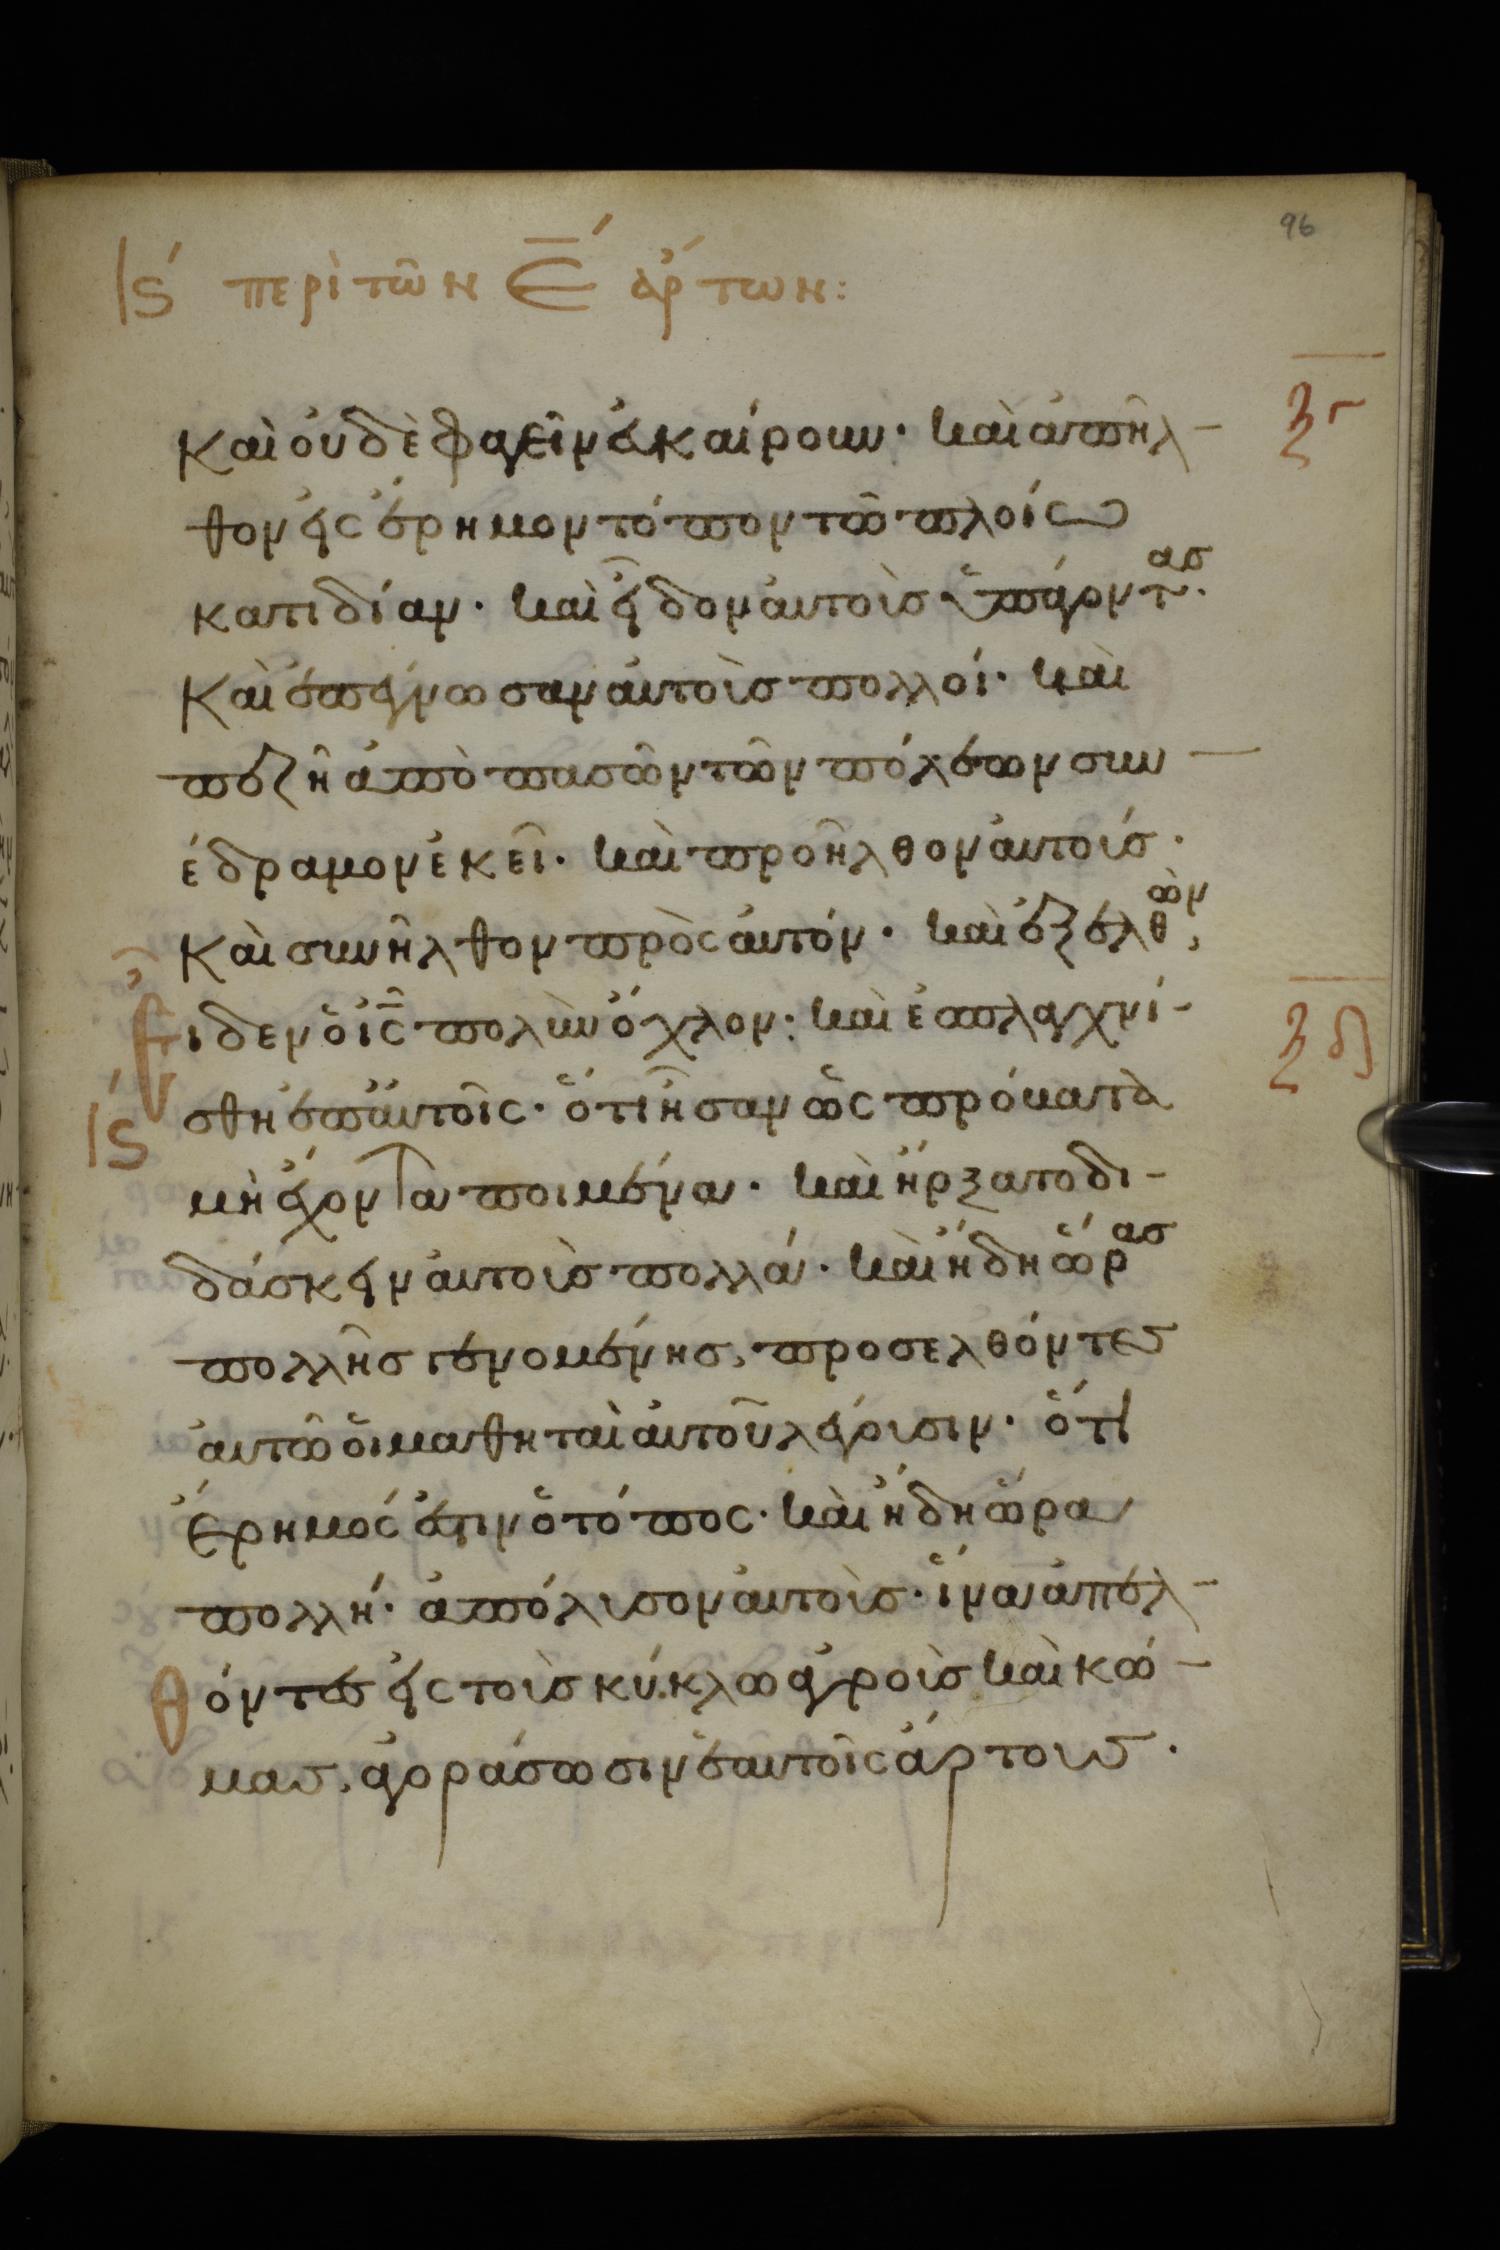 96
ιϛ́ περὶ τῶν Ε̄́ ἄρτων:
ξγ
Καὶ οὐδὲ φαγεῖν εὐκαίρουν· καὶ ἀπῆλ-
θον εἰς ἔρημον τόπον τῶ πλοίω
κατιδίαν· καὶ εἶδον αὐτοὺσ ὑπάγοντας·
Καὶ ἐπέγνωσαν αὐτοὺσ πολλοί· καὶ
πεζῆ ἀπὸ πασῶν τῶν πόλεων συν-
έδραμον ἐκεῖ· καὶ προῆλθον αὐτούσ·
Καὶ συνῆλθον πρὸς αὐτόν· καὶ ἐξελθὼν,
εἶδεν ὁ ις̄ πολὺν ὄχλον· καὶ ἐσπλαχνί-
ξδ
σθη ἐπ αὐτοῖς· ὅτι ἦσαν ὡς πρόβατα
ιϛ́
μὴ ἔχοντα ποιμένα· καὶ ἤρξατο δι-
δάσκειν αὐτοὺσ πολλά· καὶ ἤδη ὥρασ
πολλῆσ γενομένησ, προσελθόντεσ
αὐτῶ οἱ μαθηταὶ αὐτοῦ λέγουσιν· ὅτι
Ἔρημός ἐστιν ὁ τόπος· καὶ ἤδη ὥρα
πολλή· ἀπόλυσον αὐτοὺσ· ἵνα ἀπελ-
θόντεσ εἰς τοὺσ κύκλω ἀγροὺσ καὶ κώ-
μασ, ἀγοράσωσιν ἑαυτοῖς ἄρτουσ·